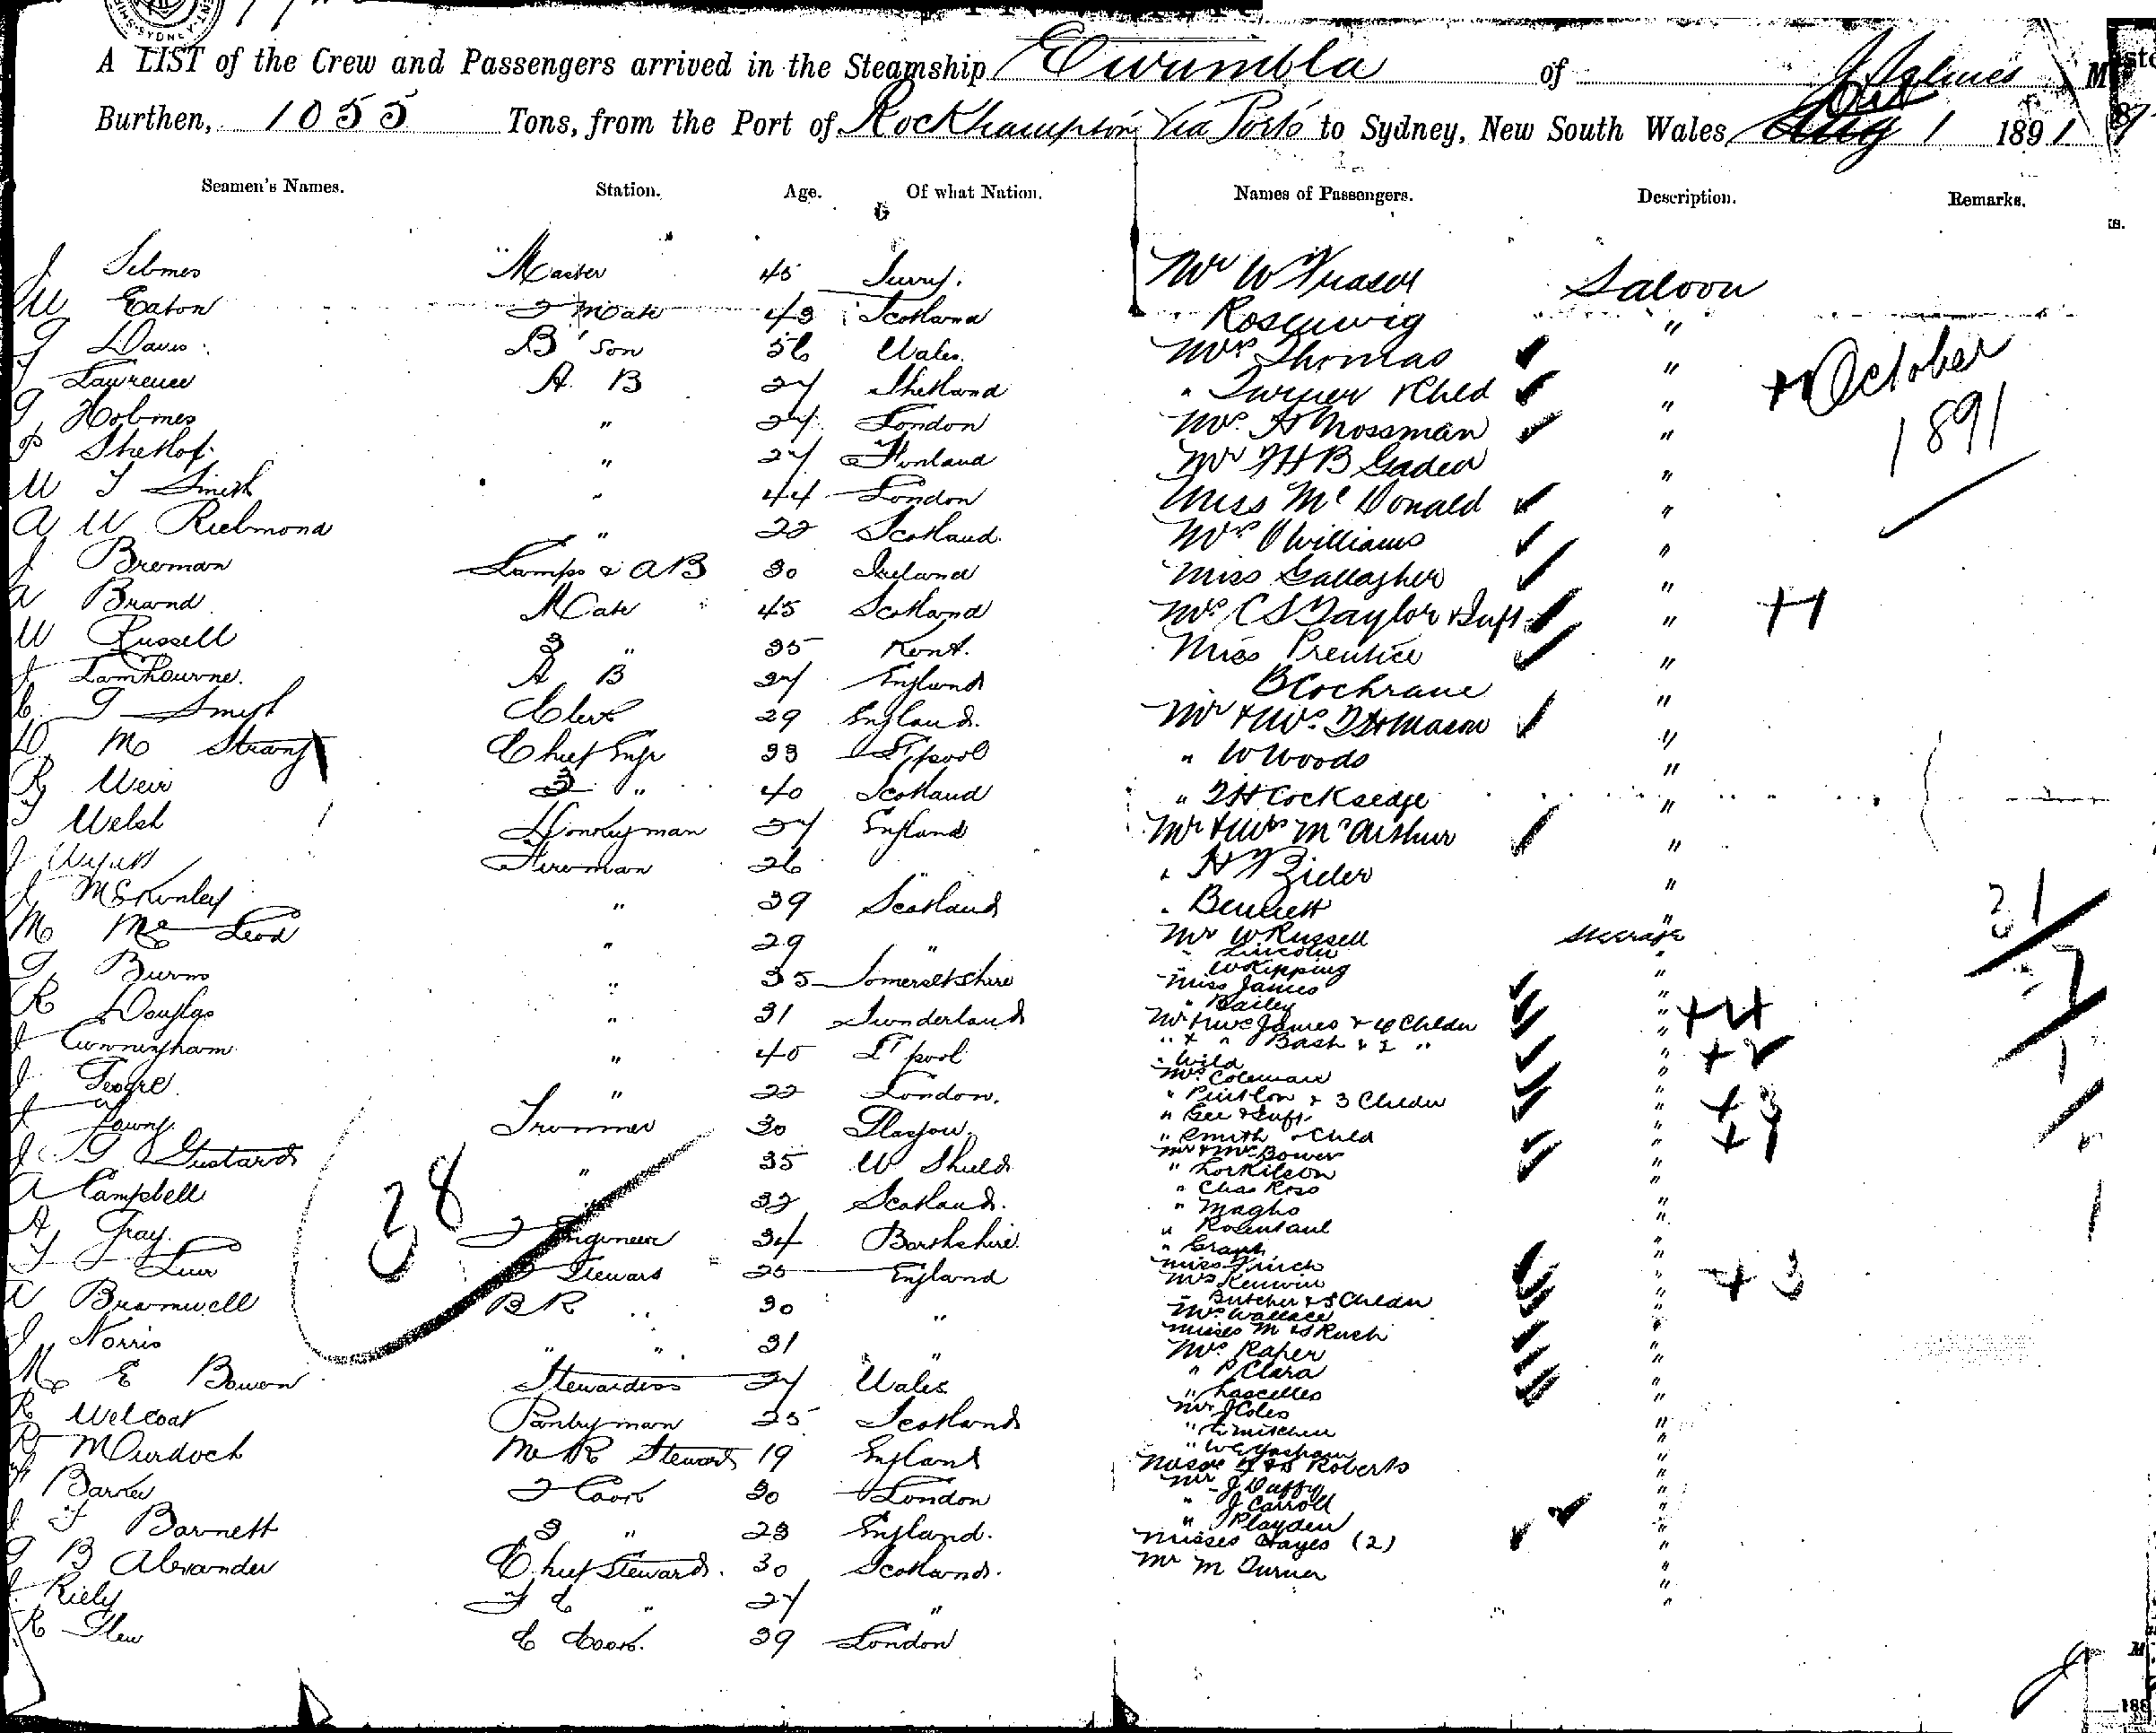 A LIST of the Crew and Passengers arrived in the Steamship Eurimbla of J Holmes
Burthen, 1055 Tons, from the Port of Rockhampton Via Ports to Sydney, New South Wales, Aug Oct 1 1891
Seamen's Names. Station. Age. Of what Nation. Names of Passengers. Description. Remarks.
J Master 45 Surry.
W Eaton 2 Mate 43 Scotland
G Davis B'Son 56 Wales.
Lawrence A B 27 Shetland
G Holmes " 27 London
" 27 Finland
W J Smith " 44 London
A W Richmond " 22 Scotland.
J Brennan Lamps & AB 30 Ireland
A Brand Mate 45 Scotland
W Russell 3 " 35 Kent.
J Lamhourne. A B 27 England
C G Smyth Clerk 29 England.
D Mc Strang Chief Engr 33 L'pool
R Weir 3 " 40 Scotland
J Welsh Donkeyman 27 England
J Wyatt Fireman 26 "
J McKinley " 39 Scotland
M McLeod " 29 "
G Burns " 35 Somersetshire
R Douglas " 31 Sunderland
J Cunningham " 40 L'pool
J " 22 London.
J Trimmer 30 Glasgow.
J G Gustard " 35 W Shields
A Campbell " 32 Scotland.
A Gray. 2 Engineer 34
2 Steward 25 England
A Bramwell B R " 30 "
J Norris " " 31 "
Mrs E Bowen Stewardess 27 Wales
R Welcoat Pantryman 25 Scotland
R Murdoch M R Steward 19 England
Barker 2 Cook 30 London
J F Barnett 3 " 23 England.
G B Alexander Chief Steward. 30 Scotland.
J Riely F C " 27 "
R C Cook. 39 London
38
Mr W Fraser Saloon
Rosenwig "
Mrs Thomas "
" Turner & Child "
Mrs H Mossman "
Mr F H B Gaden "
Miss McDonald "
Mrs Williams "
Miss Gallagher "
Mrs C S Taylor & Inft "
Miss Prentice "
B Cochrane "
Mr & Mrs T H Mason "
" W Woods "
" T H Cocksedge "
Mr & Mrs McArthur "
" H F Zieler "
" Bennett "
Mr W Russell Steerage
" Lincoln "
" W Kipping "
Miss James "
" Bailey "
Mr & Mrs James & 4 Childn "
" & " Bash & 2 " "
" Wild "
Mrs Coleman "
" & 3 Childn "
" Gee & Inft. "
" Smith & Child "
Mr & Mrs Bower "
" "
" Chas Ross "
" Magho "
" Rosentaul "
" Grant "
Miss Finch "
Mrs Kenwin "
" Butcher & 3 Childn "
Mrs Wallace "
Misses M & S Rush "
Mrs Raper "
" P Clara "
" Lascelles "
Mr J Coles "
" Mitchell "
" "
Roberts "
Mr J Duffy "
" J Carroll "
" J Playden "
Misses Hayes (2) "
Mr M Turner "
October
1891
+1
+4
+2
+3
+1
+3